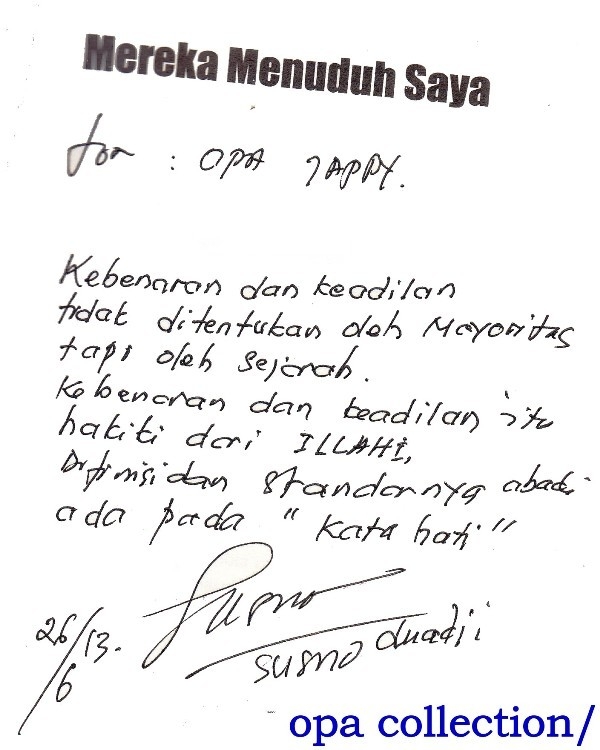 Mereka Menuduh Saya
for : OPA JAPPY.
Kebenaran dan keadilan
tidak ditentukan oleh Mayoritas
tapi oleh Sejarah.
Kebenaran dan keadilan itu
hakiki dari ILLAHI,
Difinisi dan Standarnya abadi
ada pada "Kata hati"
Susno
susno duadji
26/13.
6
opa collection/